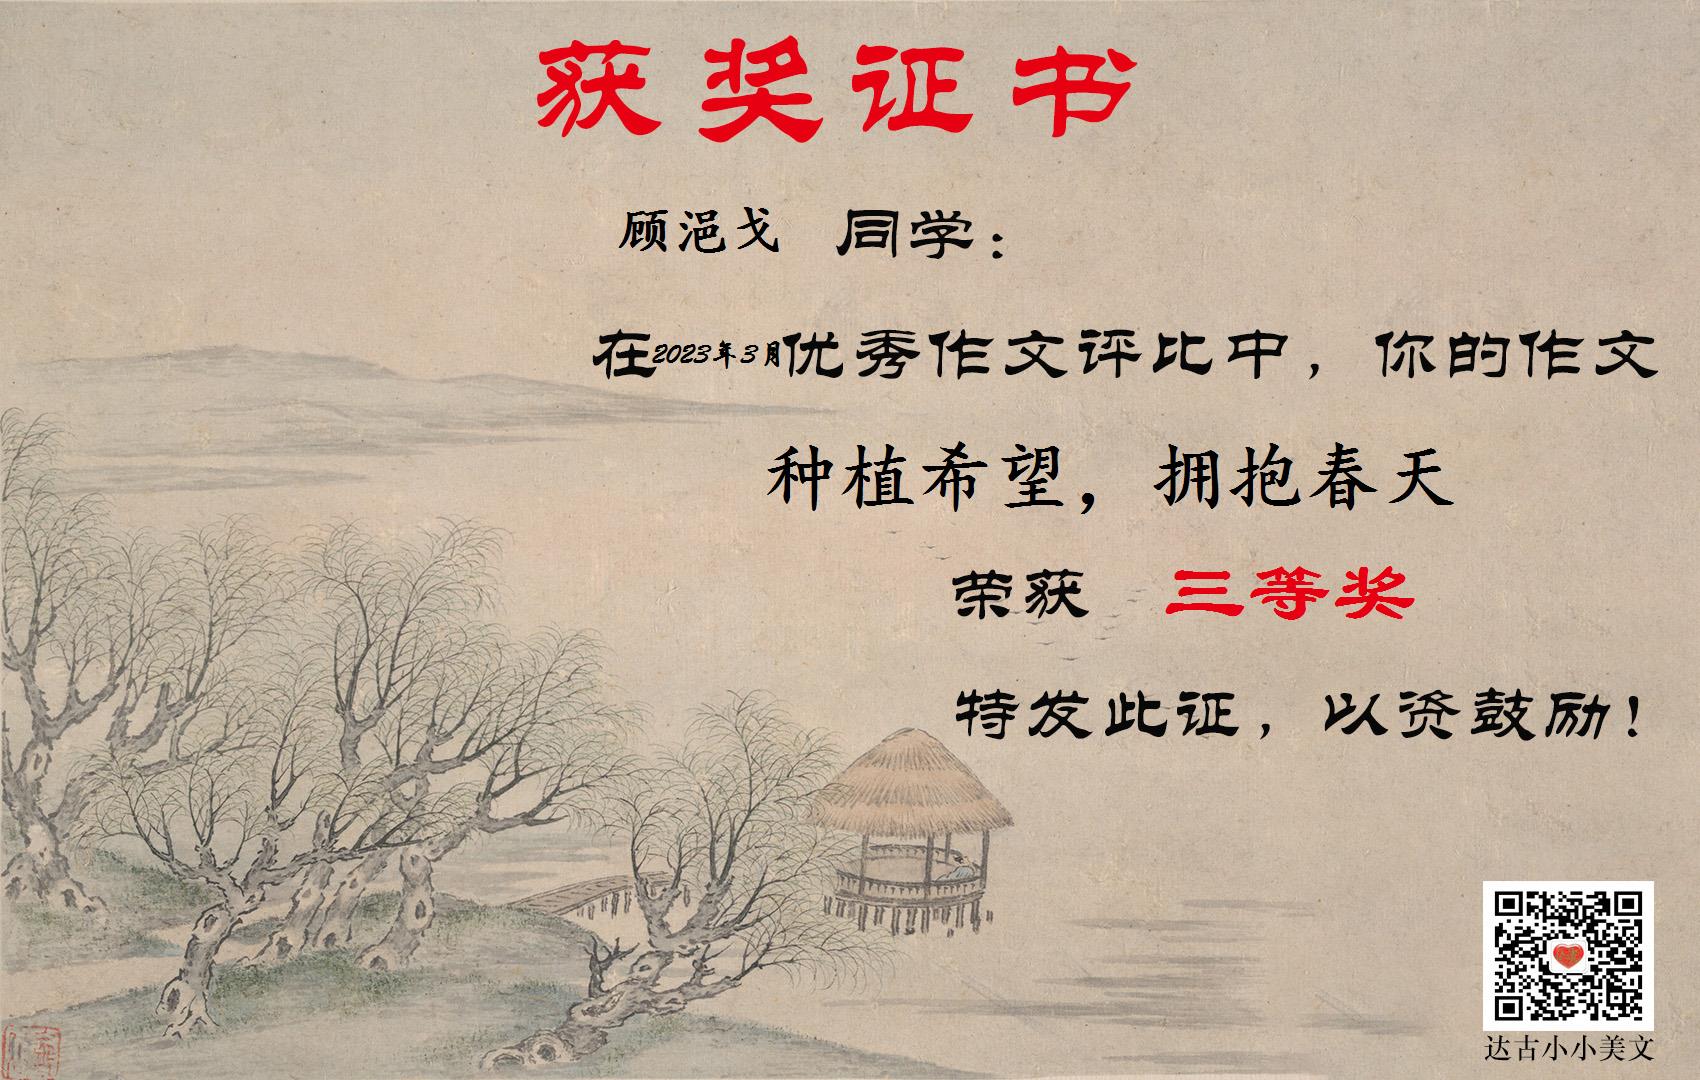 获奖证书
顾浥戈 同学：
在2023年3月优秀作文评比中，你的作文
种植希望，拥抱春天
荣获 三等奖
特发此证，以资鼓励！
达古小小美文